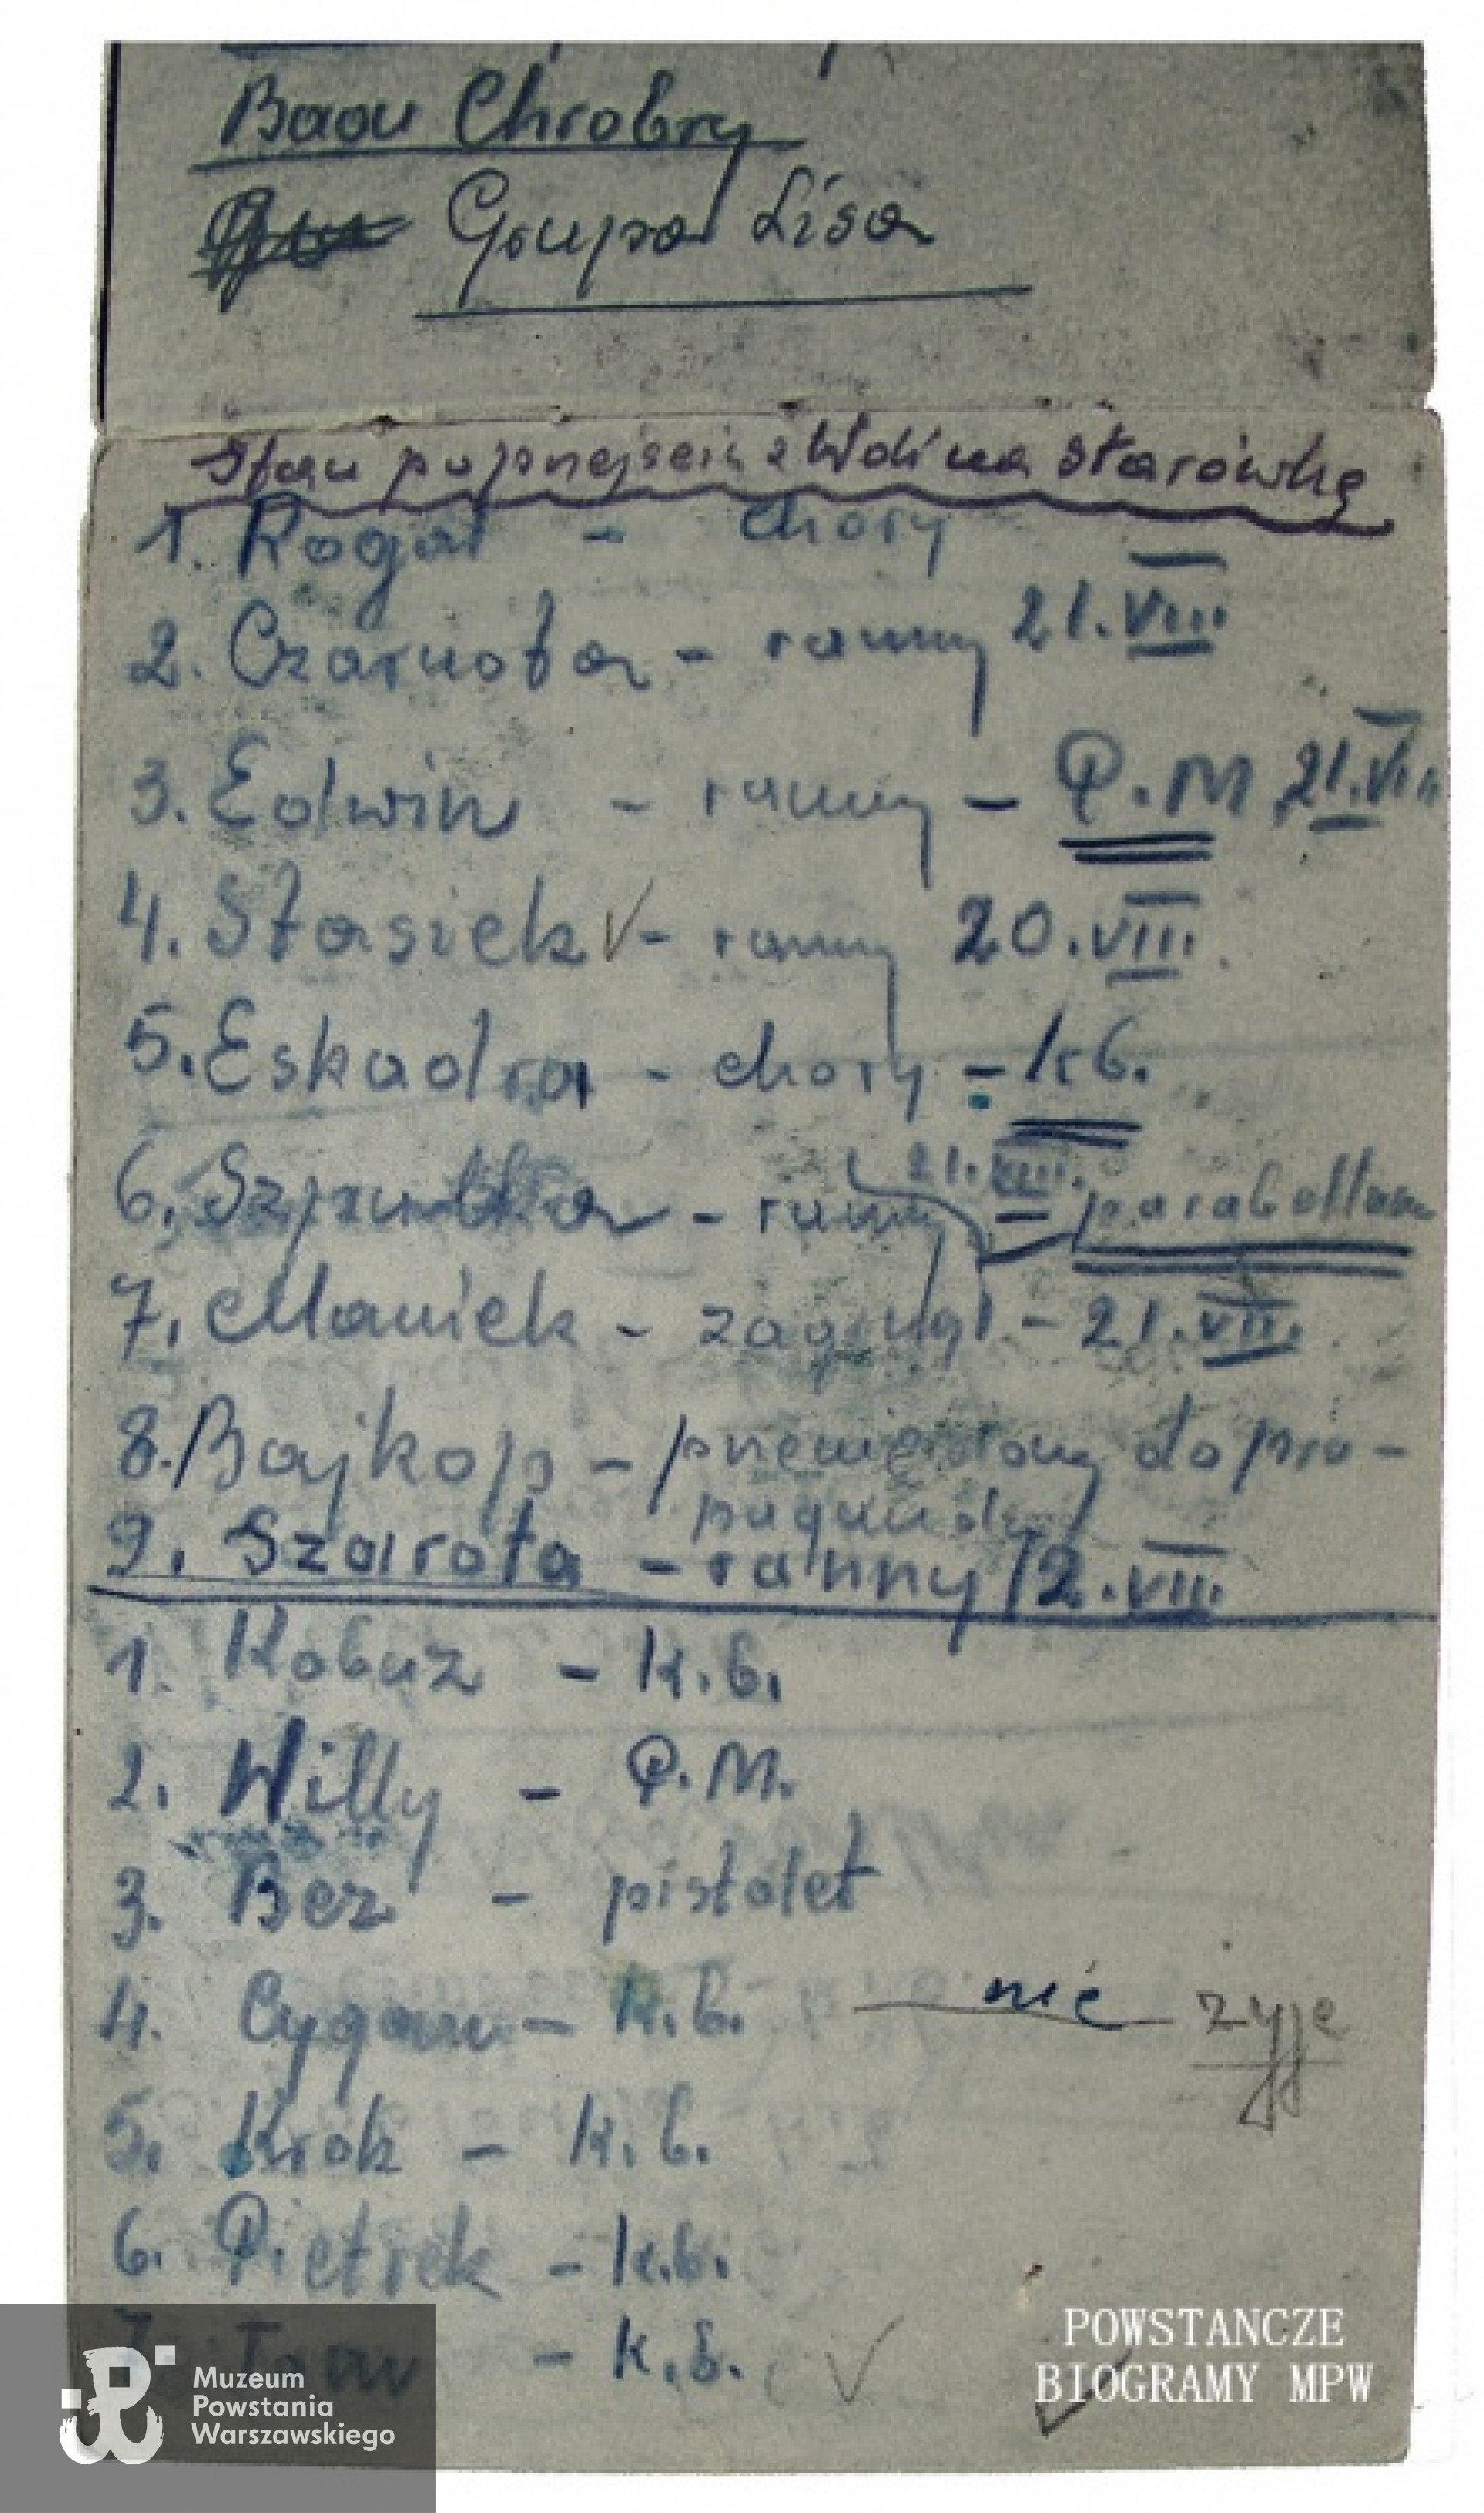 Baon Chrobry
Grupa Lisa
Stan po przejściu z Woli na Starówkę
1. Rogal - chory
2. Czarnota - ranny 21.VIII
3. Edwin - ranny - P.M 21.VIII
4. Stasiek V - ranny 20.VIII.
5. Eskadra - chory - kb.
6. - ranny 21.VIII. parabellum
7. Maniek - zaginął - 21.VIII.
8. Bajkop - przeniesiony do pro-
pagandy
9. Szarota - ranny 12.VIII.
1. Kobuz - k.b.
2. Willy - P.M.
3. Bez - pistolet
4. Cygan - k.b. nie żyje
5. Krok - k.b.
6. Pietrek - k.b.
7. - k.b. V
POWSTAŃCZE
BIOGRAMY MPW
Muzeum
Powstania
Warszawskiego